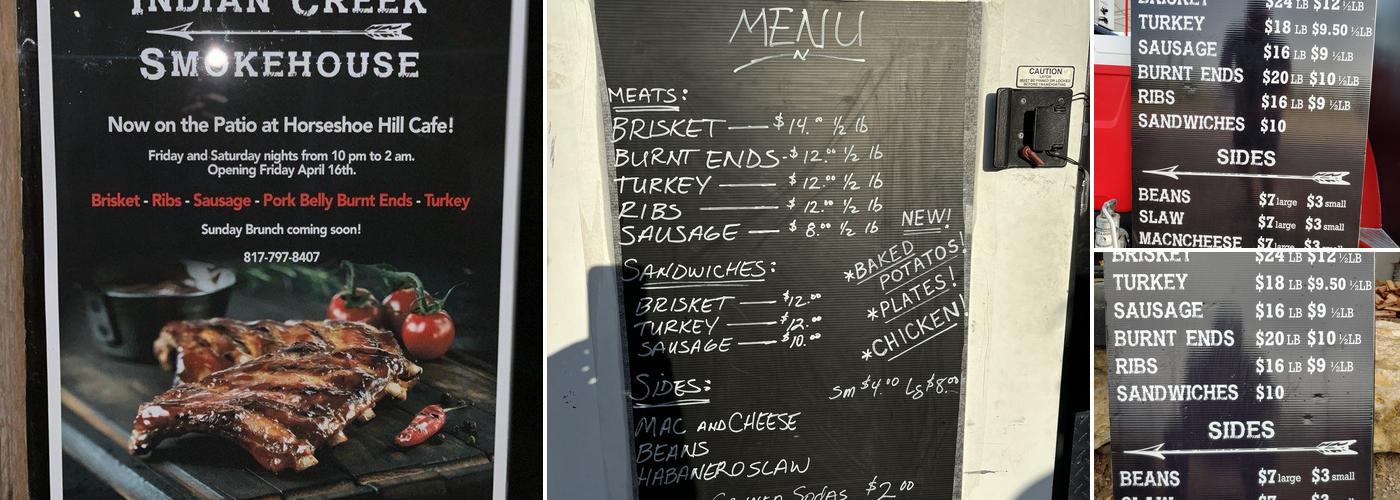 INDIAN CREEK
SMOKEHOUSE
Now on the Patio at Horseshoe Hill Cafe!
Friday and Saturday nights from 10 pm to 2 am.
Opening Friday April 16th.
Brisket - Ribs - Sausage - Pork Belly Burnt Ends - Turkey
Sunday Brunch coming soon!
817-797-8407
MENU
MEATS:
BRISKET — $14.00 ½ lb
BURNT ENDS - $12.00 ½ lb
TURKEY — $12.00 ½ lb
RIBS — $12.00 ½ lb
SAUSAGE — $8.00 ½ lb
SANDWICHES:
BRISKET — $12.00
TURKEY — $12.00
SAUSAGE — $10.00
NEW!
*BAKED
POTATOS!
*PLATES!
*CHICKEN!
SIDES:
sm $4.00 Lg $8.00
MAC AND CHEESE
BEANS
HABANERO SLAW
SODAS $2.00
CAUTION
BRISKET $24 LB $12 ½LB
TURKEY $18 LB $9.50 ½LB
SAUSAGE $16 LB $9 ½LB
BURNT ENDS $20 LB $10 ½LB
RIBS $16 LB $9 ½LB
SANDWICHES $10
SIDES
BEANS $7 large $3 small
SLAW $7 large $3 small
MACNCHEESE $7 large $3 small
BRISKET $24 LB $12 ½LB
TURKEY $18 LB $9.50 ½LB
SAUSAGE $16 LB $9 ½LB
BURNT ENDS $20 LB $10 ½LB
RIBS $16 LB $9 ½LB
SANDWICHES $10
SIDES
BEANS $7 large $3 small
SLAW